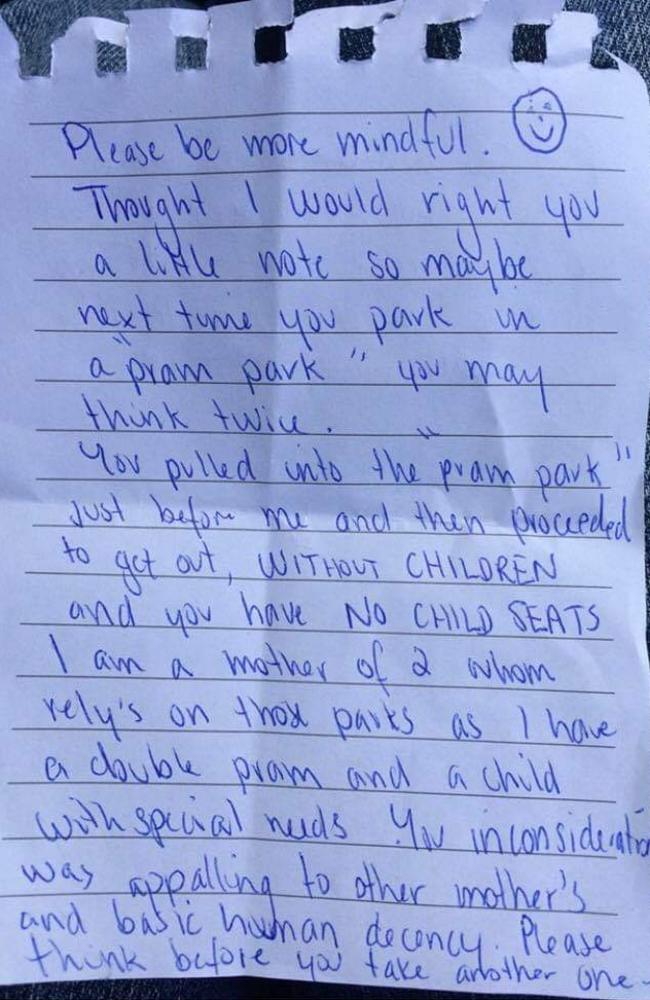 Please be more mindful.
Thought I would right you
a little note so maybe
next time you park in
a "pram park" you may
think twice.
You pulled into the "pram park"
just before me and then proceeded
to get out, WITHOUT CHILDREN
and you have NO CHILD SEATS
I am a mother of 2 whom
rely's on those parks as I have
a double pram and a child
with special needs You inconsideration
was appalling to other mother's
and basic human decency. Please
think before you take another one.